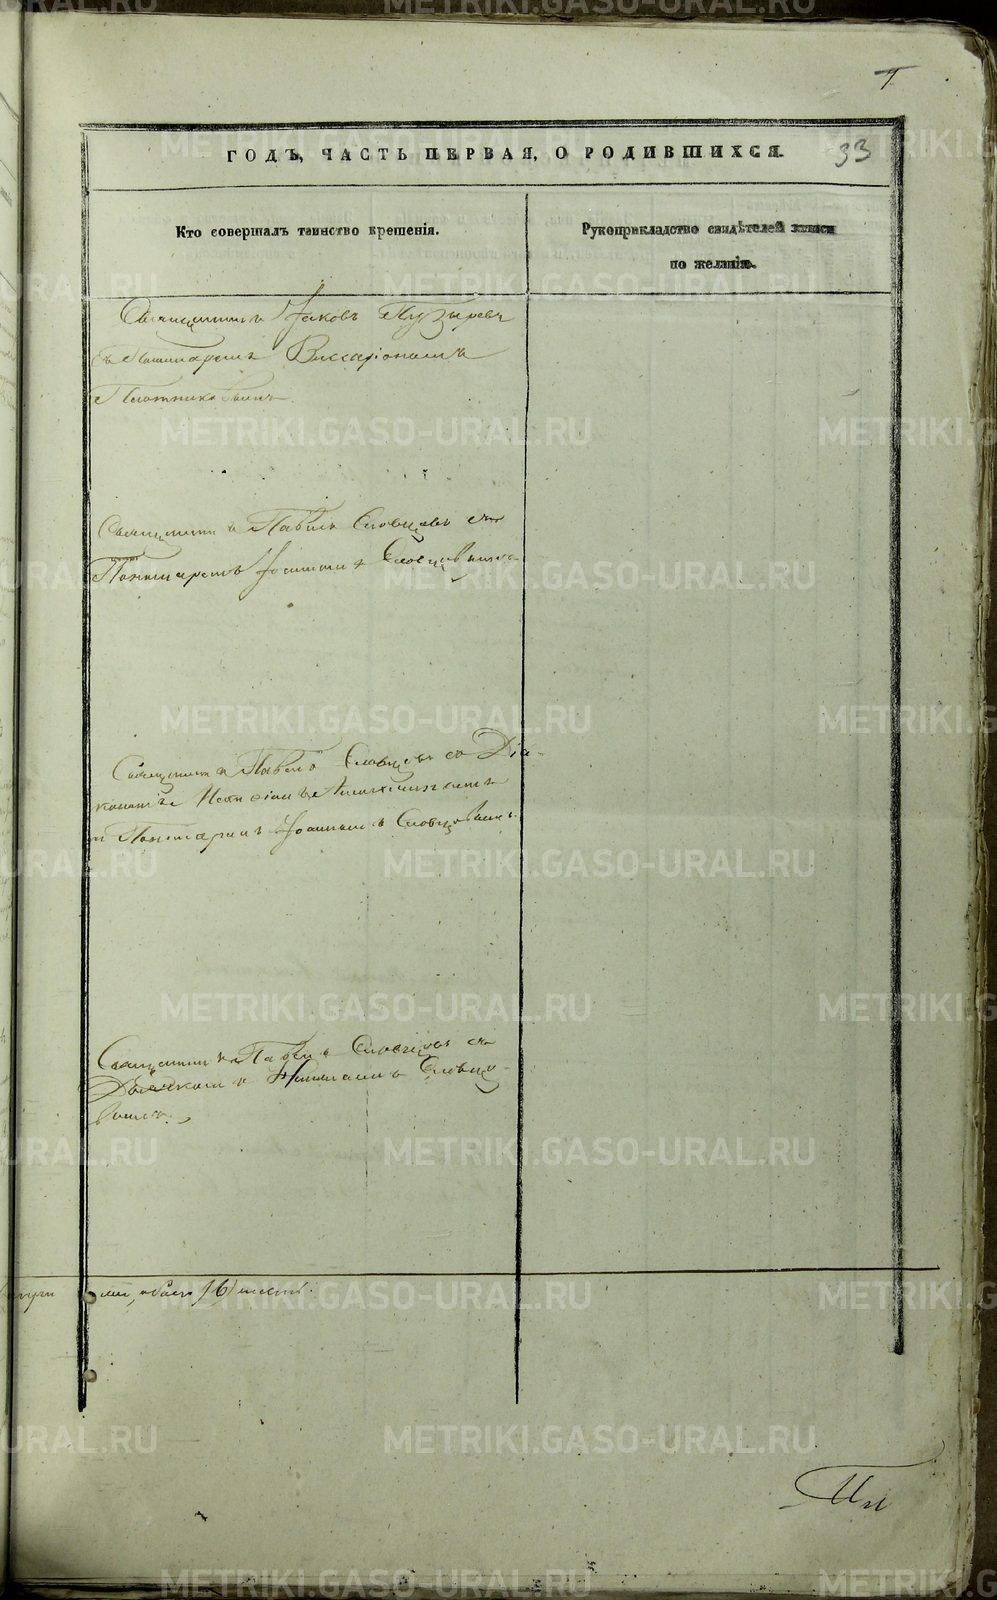 ГОДЪ, ЧАСТЬ ПЕРВАЯ, О РОДИВШИХСЯ.
33
Кто совершалъ таинство крещенія.
Рукоприкладство свидѣтелей записи
по желанію.
Священникъ Іаковъ Пузыревъ
съ Пономаремъ Виссаріономъ
Плотниковымъ.
Священникъ Павелъ Словцовъ съ
Пономаремъ Іоанномъ Словцовымъ
Священникъ Павелъ Словцовъ со Діа-
кономъ
и Пономаремъ Іоанномъ Словцовымъ.
Священникъ Павелъ Словцовъ съ
Дьячкомъ Словцо-
вымъ.
обоего (6) шесть.
METRIKI.GASO-URAL.RU